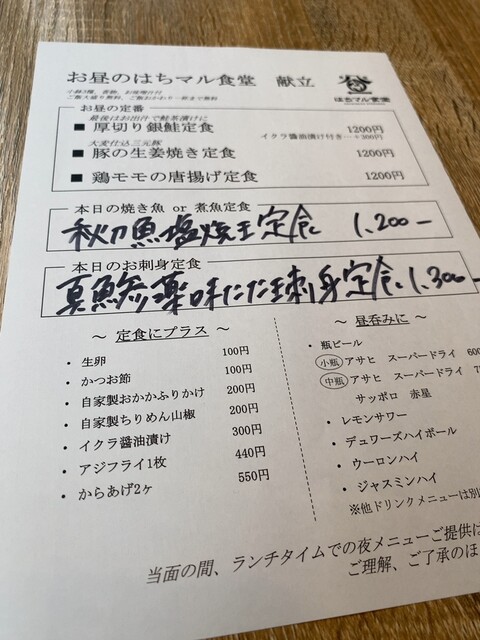 お昼のはちマル食堂 献立
はちマル食堂
小鉢2種、香物、お味噌汁付
ご飯大盛り無料、ご飯おかわり一杯まで無料
お昼の定番
最後はお出汁で鮭茶漬けに
■ 厚切り銀鮭定食 1200円
イクラ醤油漬け付き…+300円
大麦仕込三元豚
■ 豚の生姜焼き定食 1200円
■ 鶏モモの唐揚げ定食 1200円
本日の焼き魚 or 煮魚定食
秋刀魚塩焼き定食 1,200-
本日のお刺身定食
真鯵薬味たたき刺身定食 1,300-
～ 定食にプラス ～
・ 生卵 100円
・ かつお節 100円
・ 自家製おかかふりかけ 200円
・ 自家製ちりめん山椒 200円
・ イクラ醤油漬け 300円
・ アジフライ1枚 440円
・ からあげ2ヶ 550円
～ 昼呑みに ～
・ 瓶ビール
小瓶 アサヒ スーパードライ 600
中瓶 アサヒ スーパードライ
サッポロ 赤星
・ レモンサワー
・ デュワーズハイボール
・ ウーロンハイ
・ ジャスミンハイ
※他ドリンクメニューは別
当面の間、ランチタイムでの夜メニューご提供は
ご理解、ご了承のほ